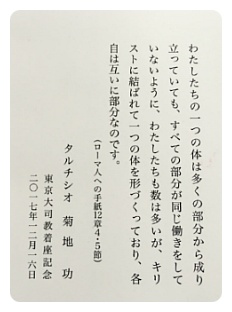 わたしたちの一つの体は多くの部分から成り
立っていても、すべての部分が同じ働きをして
いないように、わたしたちも数は多いが、キリ
ストに結ばれて一つの体を形づくっており、各
自は互いに部分なのです。
（ローマ人への手紙12章4・5節）
タルチシオ 菊地 功
東京大司教着座記念
二〇一七年一二月一六日